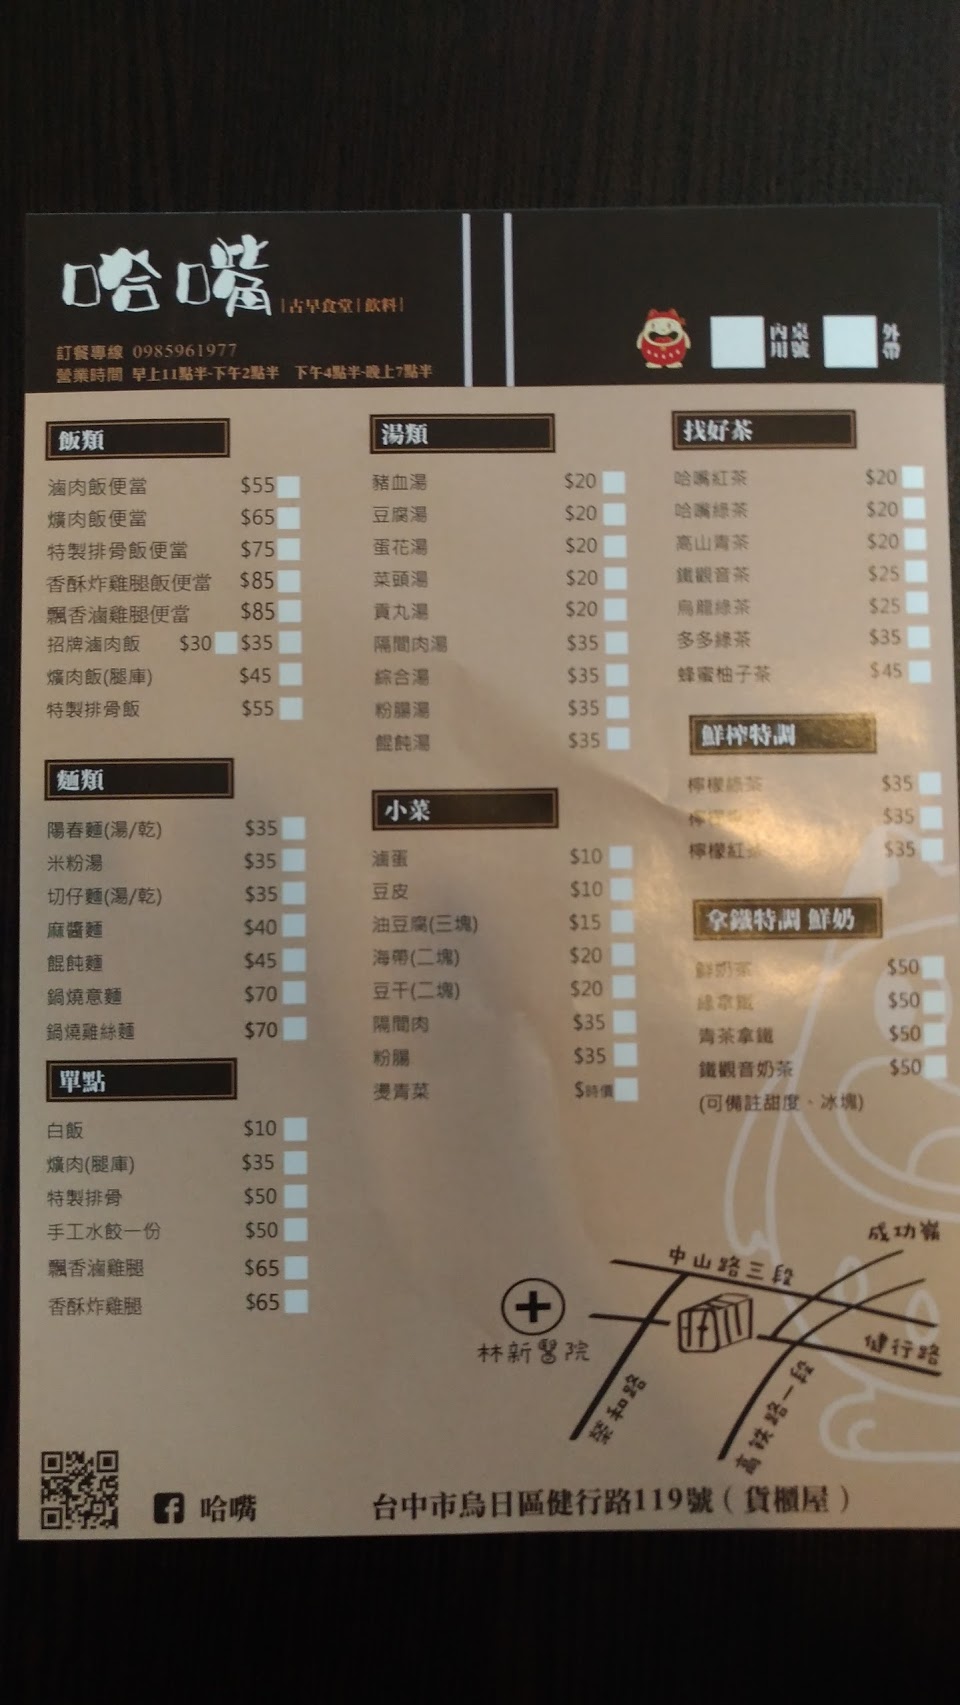 哈嘴 |古早食堂|飲料|
訂餐專線 0985961977
營業時間 早上11點半-下午2點半 下午4點半-晚上7點半
內用 桌號
外帶
飯類
滷肉飯便當 $55
爌肉飯便當 $65
特製排骨飯便當 $75
香酥炸雞腿飯便當 $85
飄香滷雞腿便當 $85
招牌滷肉飯 $30 $35
爌肉飯(腿庫) $45
特製排骨飯 $55
麵類
陽春麵(湯/乾) $35
米粉湯 $35
切仔麵(湯/乾) $35
麻醬麵 $40
餛飩麵 $45
鍋燒意麵 $70
鍋燒雞絲麵 $70
單點
白飯 $10
爌肉(腿庫) $35
特製排骨 $50
手工水餃一份 $50
飄香滷雞腿 $65
香酥炸雞腿 $65
湯類
豬血湯 $20
豆腐湯 $20
蛋花湯 $20
菜頭湯 $20
貢丸湯 $20
隔間肉湯 $35
綜合湯 $35
粉腸湯 $35
餛飩湯 $35
小菜
滷蛋 $10
豆皮 $10
油豆腐(三塊) $15
海帶(二塊) $20
豆干(二塊) $20
隔間肉 $35
粉腸 $35
燙青菜 $時價
找好茶
哈嘴紅茶 $20
哈嘴綠茶 $20
高山青茶 $20
鐵觀音茶 $25
烏龍綠茶 $25
多多綠茶 $35
蜂蜜柚子茶 $45
鮮榨特調
檸檬綠茶 $35
檸檬 $35
檸檬紅茶 $35
拿鐵特調 鮮奶
鮮奶茶 $50
綠拿鐵 $50
青茶拿鐵 $50
鐵觀音奶茶 $50
(可備註甜度、冰塊)
成功嶺
中山路三段
健行路
林新醫院
榮和路
高鐵路一段
哈嘴
台中市烏日區健行路119號(貨櫃屋)